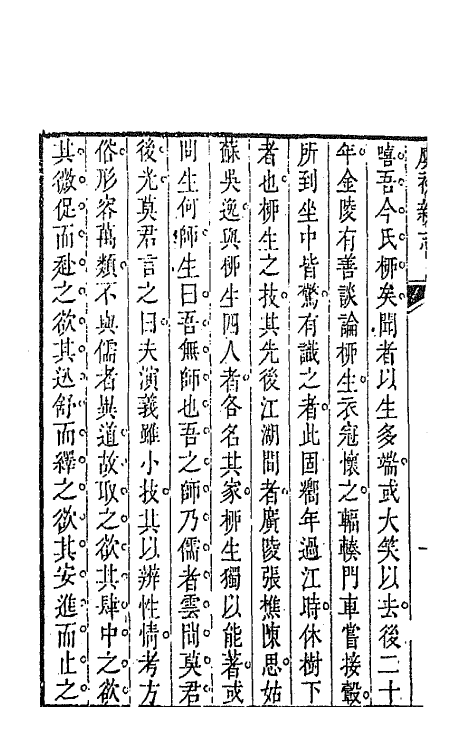 虞初新志
嘻吾今氏柳矣聞者以生多端或大笑以去後二十
年金陵有善談論柳生衣冠懷之輻輳門車嘗接轂
所到坐中皆驚有識之者此固嚮年過江時休樹下
者也柳生之技其先後江湖間者廣陵張樵陳思姑
蘇吳逸與柳生四人者各名其家柳生獨以能著或
問生何師生曰吾無師也吾之師乃儒者雲間莫君
後光莫君言之曰夫演義雖小技其以辨性情考方
俗形容萬類不與儒者異道故取之欲其肆中之欲
其微促而赴之欲其迅舒而繹之欲其安進而止之